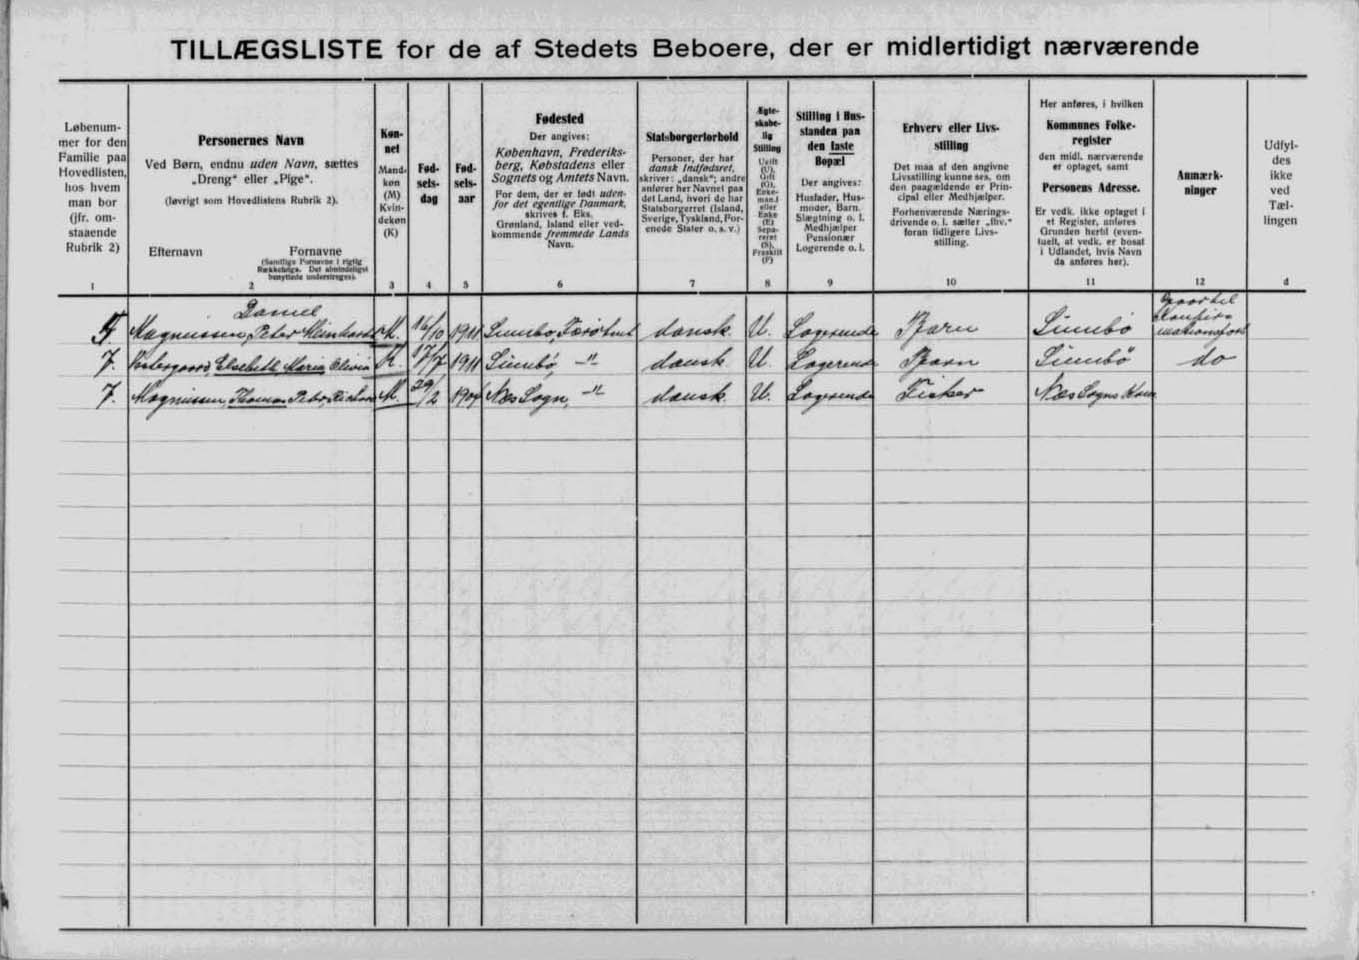 TILLÆGSLISTE for de af Stedets Beboere, der er midlertidigt nærværende
Løbenum-
mer for den
Familie paa
Hovedlisten,
hos hvem
man bor
(jfr. om-
staaende
Rubrik 2)
1
Personernes Navn
Ved Børn, endnu uden Navn, sættes
„Dreng“ eller „Pige“.
(Iøvrigt som Hovedlistens Rubrik 2).
Efternavn Fornavne
(Samtlige Fornavne i rigtig
Rækkefølge. Det almindeligst
benyttede understreges).
2
Køn-
net
Mand-
køn
(M)
Kvin-
dekøn
(K)
3
Fød-
sels-
dag
4
Fød-
sels-
aar
5
Fødested
Der angives:
København, Frederiks-
berg, Købstadens eller
Sognets og Amtets Navn.
For dem, der er født uden-
for det egentlige Danmark,
skrives f. Eks.
Grønland, Island eller ved-
kommende fremmede Lands
Navn.
6
Statsborgerforhold
Personer, der har
dansk Indfødsret,
skriver: „dansk“; andre
anfører her Navnet paa
det Land, hvori de har
Statsborgerret (Island,
Sverige, Tyskland, For-
enede Stater o. s. v.)
7
Ægte-
skabe-
lig
Stilling
Ugift
(U),
Gift
(G),
Enke-
mand
eller
Enke
(E)
Sepa-
reret
(S),
Fraskilt
(F)
8
Stilling i Hus-
standen paa
den faste
Bopæl
Der angives:
Husfader, Hus-
moder, Barn.
Slægtning o. l.
Medhjælper
Pensionær
Logerende o. l.
9
Erhverv eller Livs-
stilling
Det maa af den angivne
Livsstilling kunne ses, om
den paagældende er Prin-
cipal eller Medhjælper.
Forhenværende Nærings-
drivende o. l. sætter „fhv.“
foran tidligere Livs-
stilling.
10
Her anføres, i hvilken
Kommunes Folke-
register
den midl. nærværende
er optaget, samt
Personens Adresse.
Er vedk. ikke optaget i
et Register, anføres
Grunden hertil (even-
tuelt, at vedk. er bosat
i Udlandet, hvis Navn
da anføres her).
11
Anmærk-
ninger
12
Udfyl-
des
ikke
ved
Tæl-
lingen
d
Daniel
Magnussen, Peter M. 16/10 1911 Sumbø, dansk. U. Logerende Barn Sumbø
7. Elsebeth Maria Olivia K. 17/7 1911 Sumbø, -"- dansk U. Logerende Barn Sumbø do
7. Magnussen, Thomas Peter M. 29/2 1904 Næs Sogn, -"- dansk. U. Logerende Fisker Næs Sogns Kom.